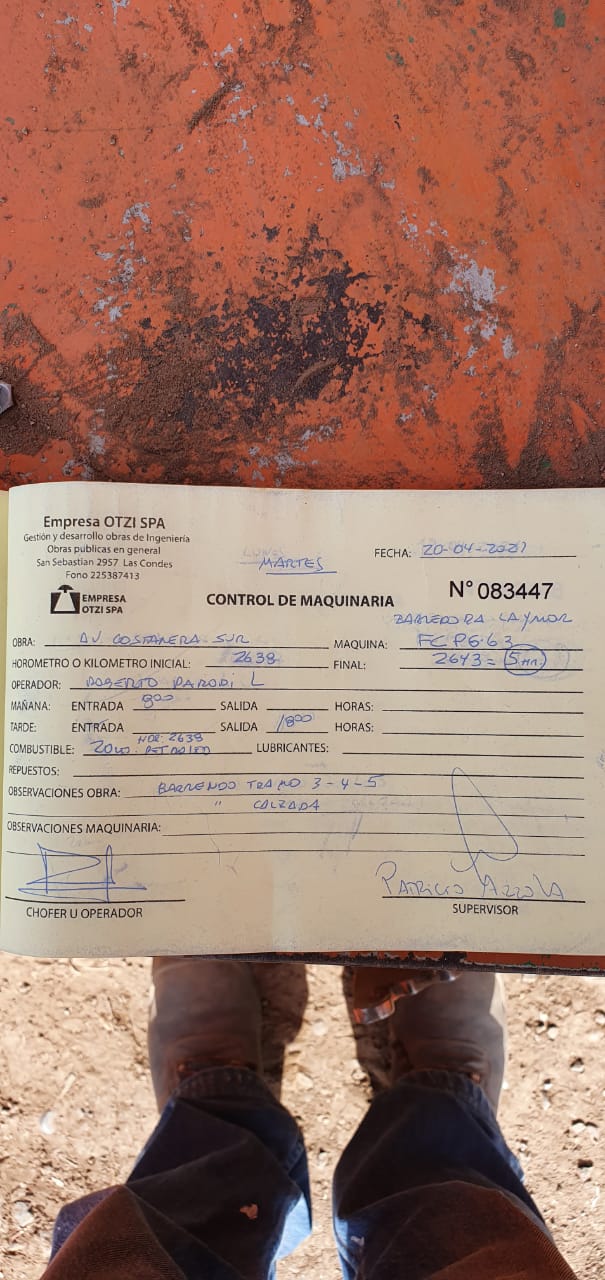 Empresa OTZI SPA
Gestión y desarrollo obras de Ingeniería
Obras publicas en general
San Sebastian 2957. Las Condes
Fono 225387413
EMPRESA
OTZI SPA
MARTES
FECHA: 20-04-2021
CONTROL DE MAQUINARIA
N° 083447
BARREDORA LAYMOR
OBRA: AV COSTANERA SUR
MAQUINA: FCPG63
HOROMETRO O KILOMETRO INICIAL: 2638
FINAL: 2643 = 5 HR.
OPERADOR: ROBERTO PARODI L
MAÑANA: ENTRADA 8:00 SALIDA HORAS:
TARDE: ENTRADA SALIDA 18:00 HORAS:
HOR: 2638
COMBUSTIBLE: PETROLEO LUBRICANTES:
REPUESTOS:
OBSERVACIONES OBRA: BARRIENDO TRAMO 3-4-5
" CALZADA
OBSERVACIONES MAQUINARIA:
CHOFER U OPERADOR
PATRICIO
SUPERVISOR